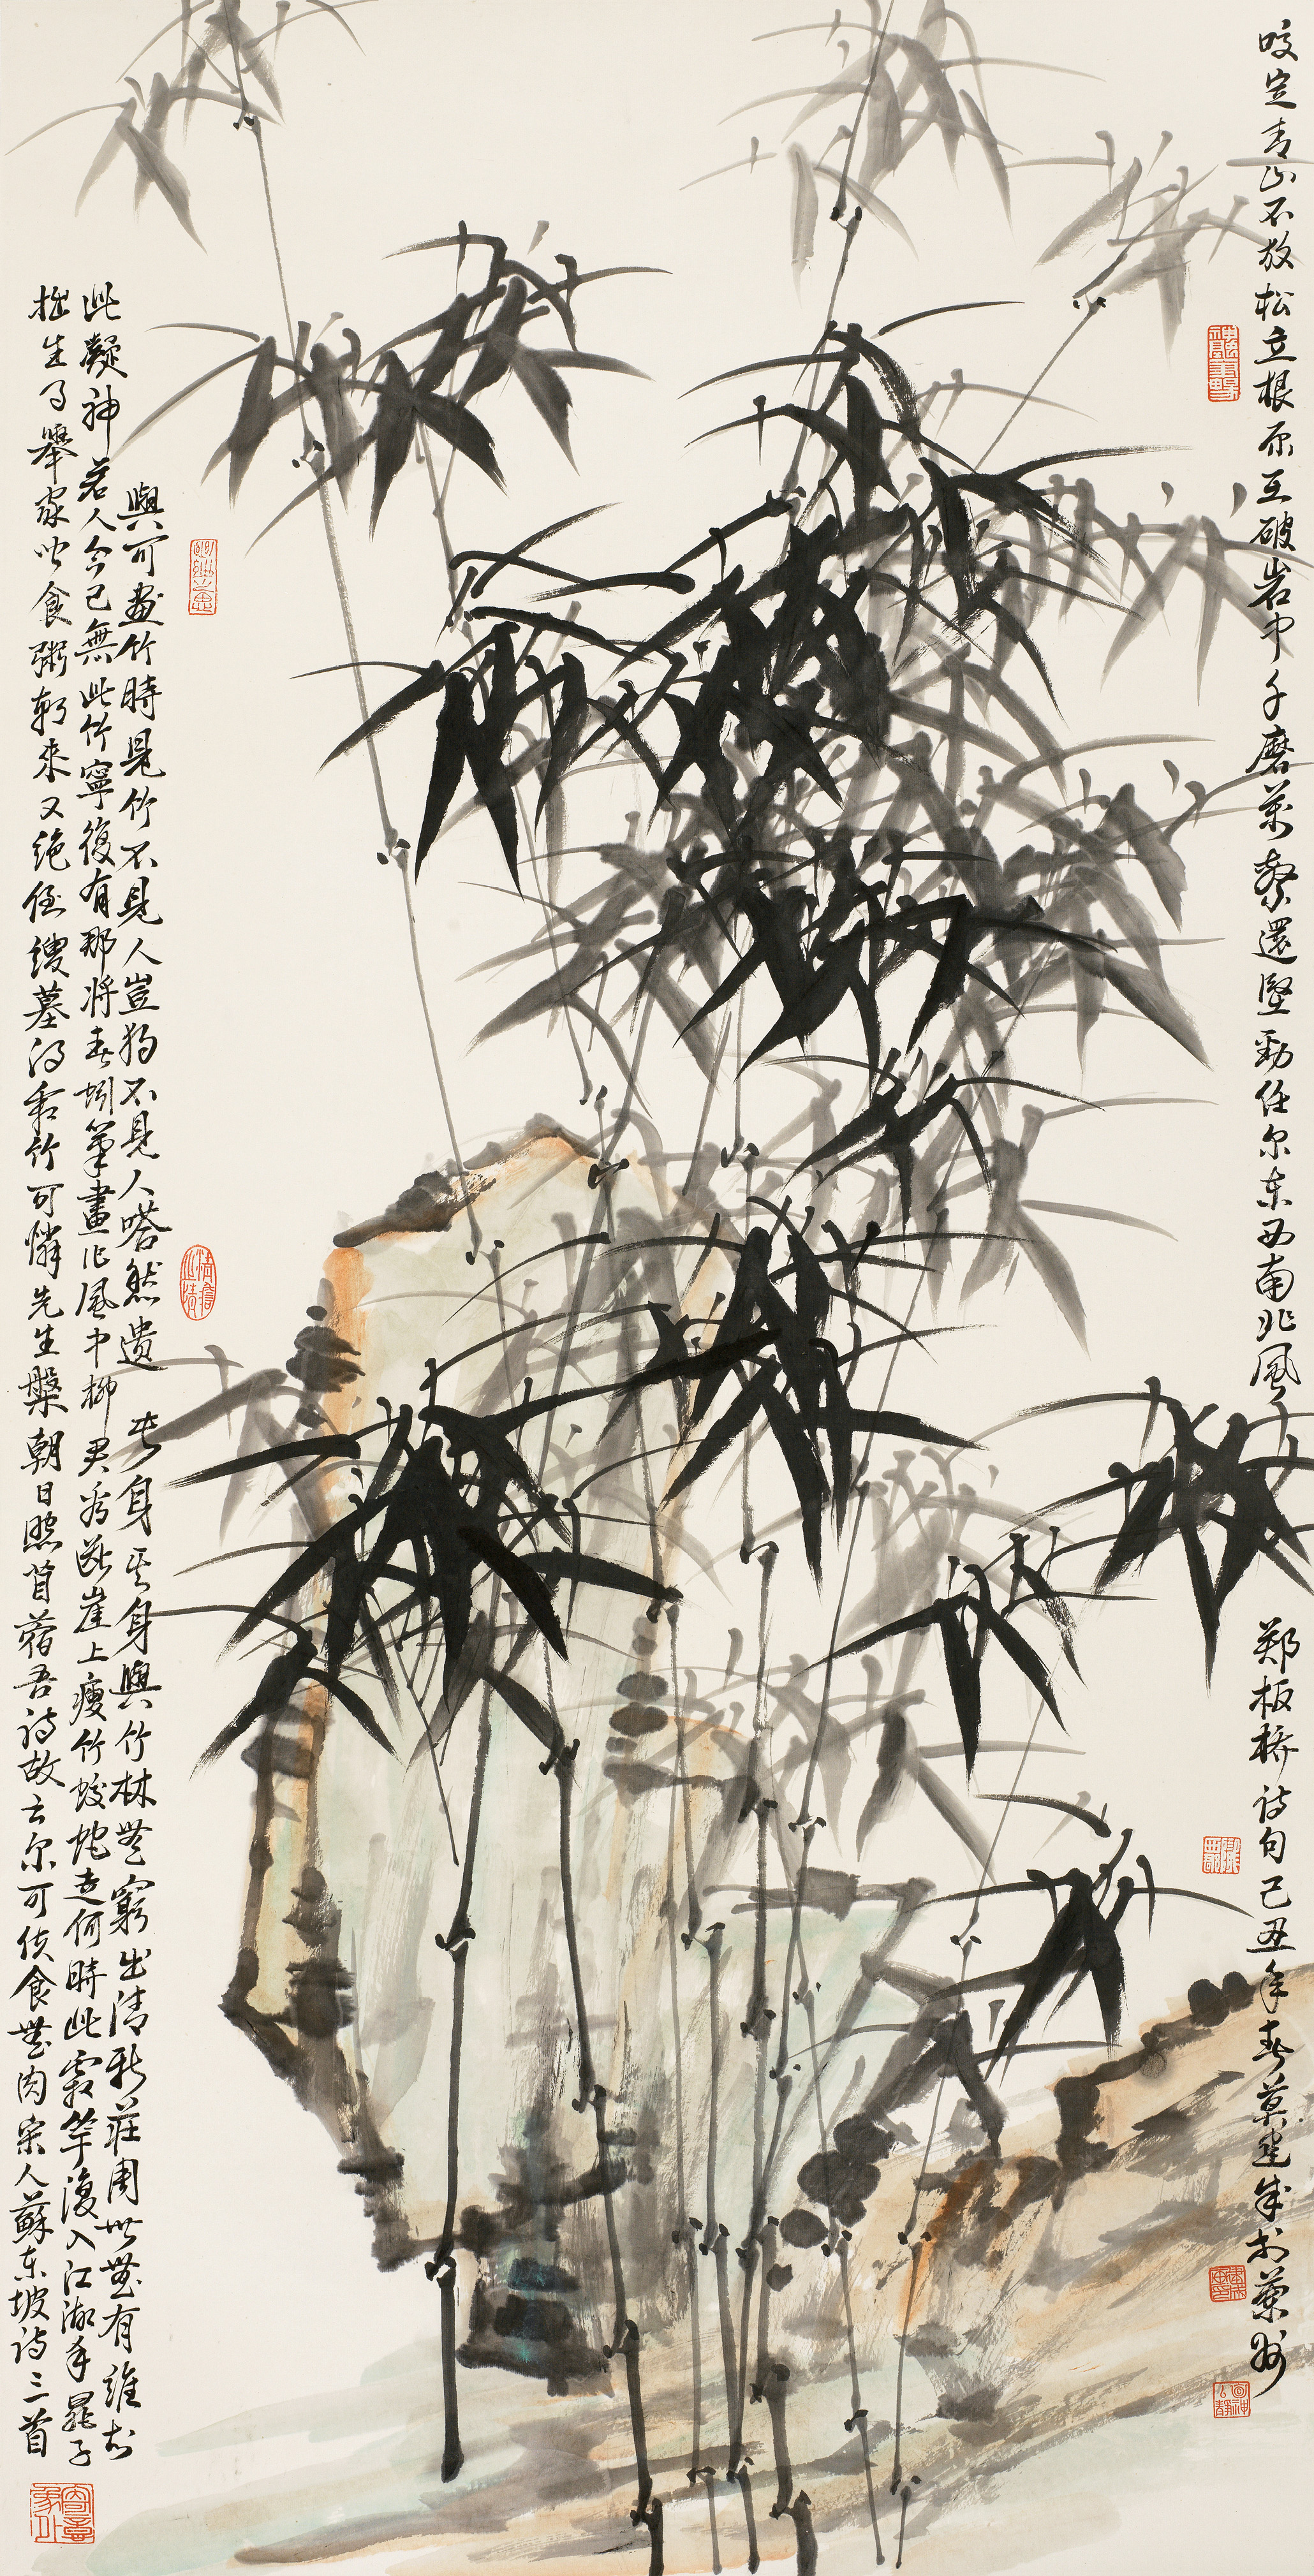 咬定青山不放松立根原在破岩中千磨萬擊還堅勁任尔东西南北風
郑板桥诗句己丑年春莫建成於蘭州
與可畫竹時見竹不見人豈独不見人嗒然遺其身其身與竹林無窮出清新莊周世無有誰知
此凝神若人今已無此竹寧復有那将春蚓筆畫作風中柳君看断崖上瘦竹蛟蛇走何時此霜竿復入江湖手晁子
拙生事舉家闻食粥朝来又绝倒諛墓得竹可憐先生槃朝日照苜蓿吾诗故云尔可使食無肉宋人蘇东坡诗三首